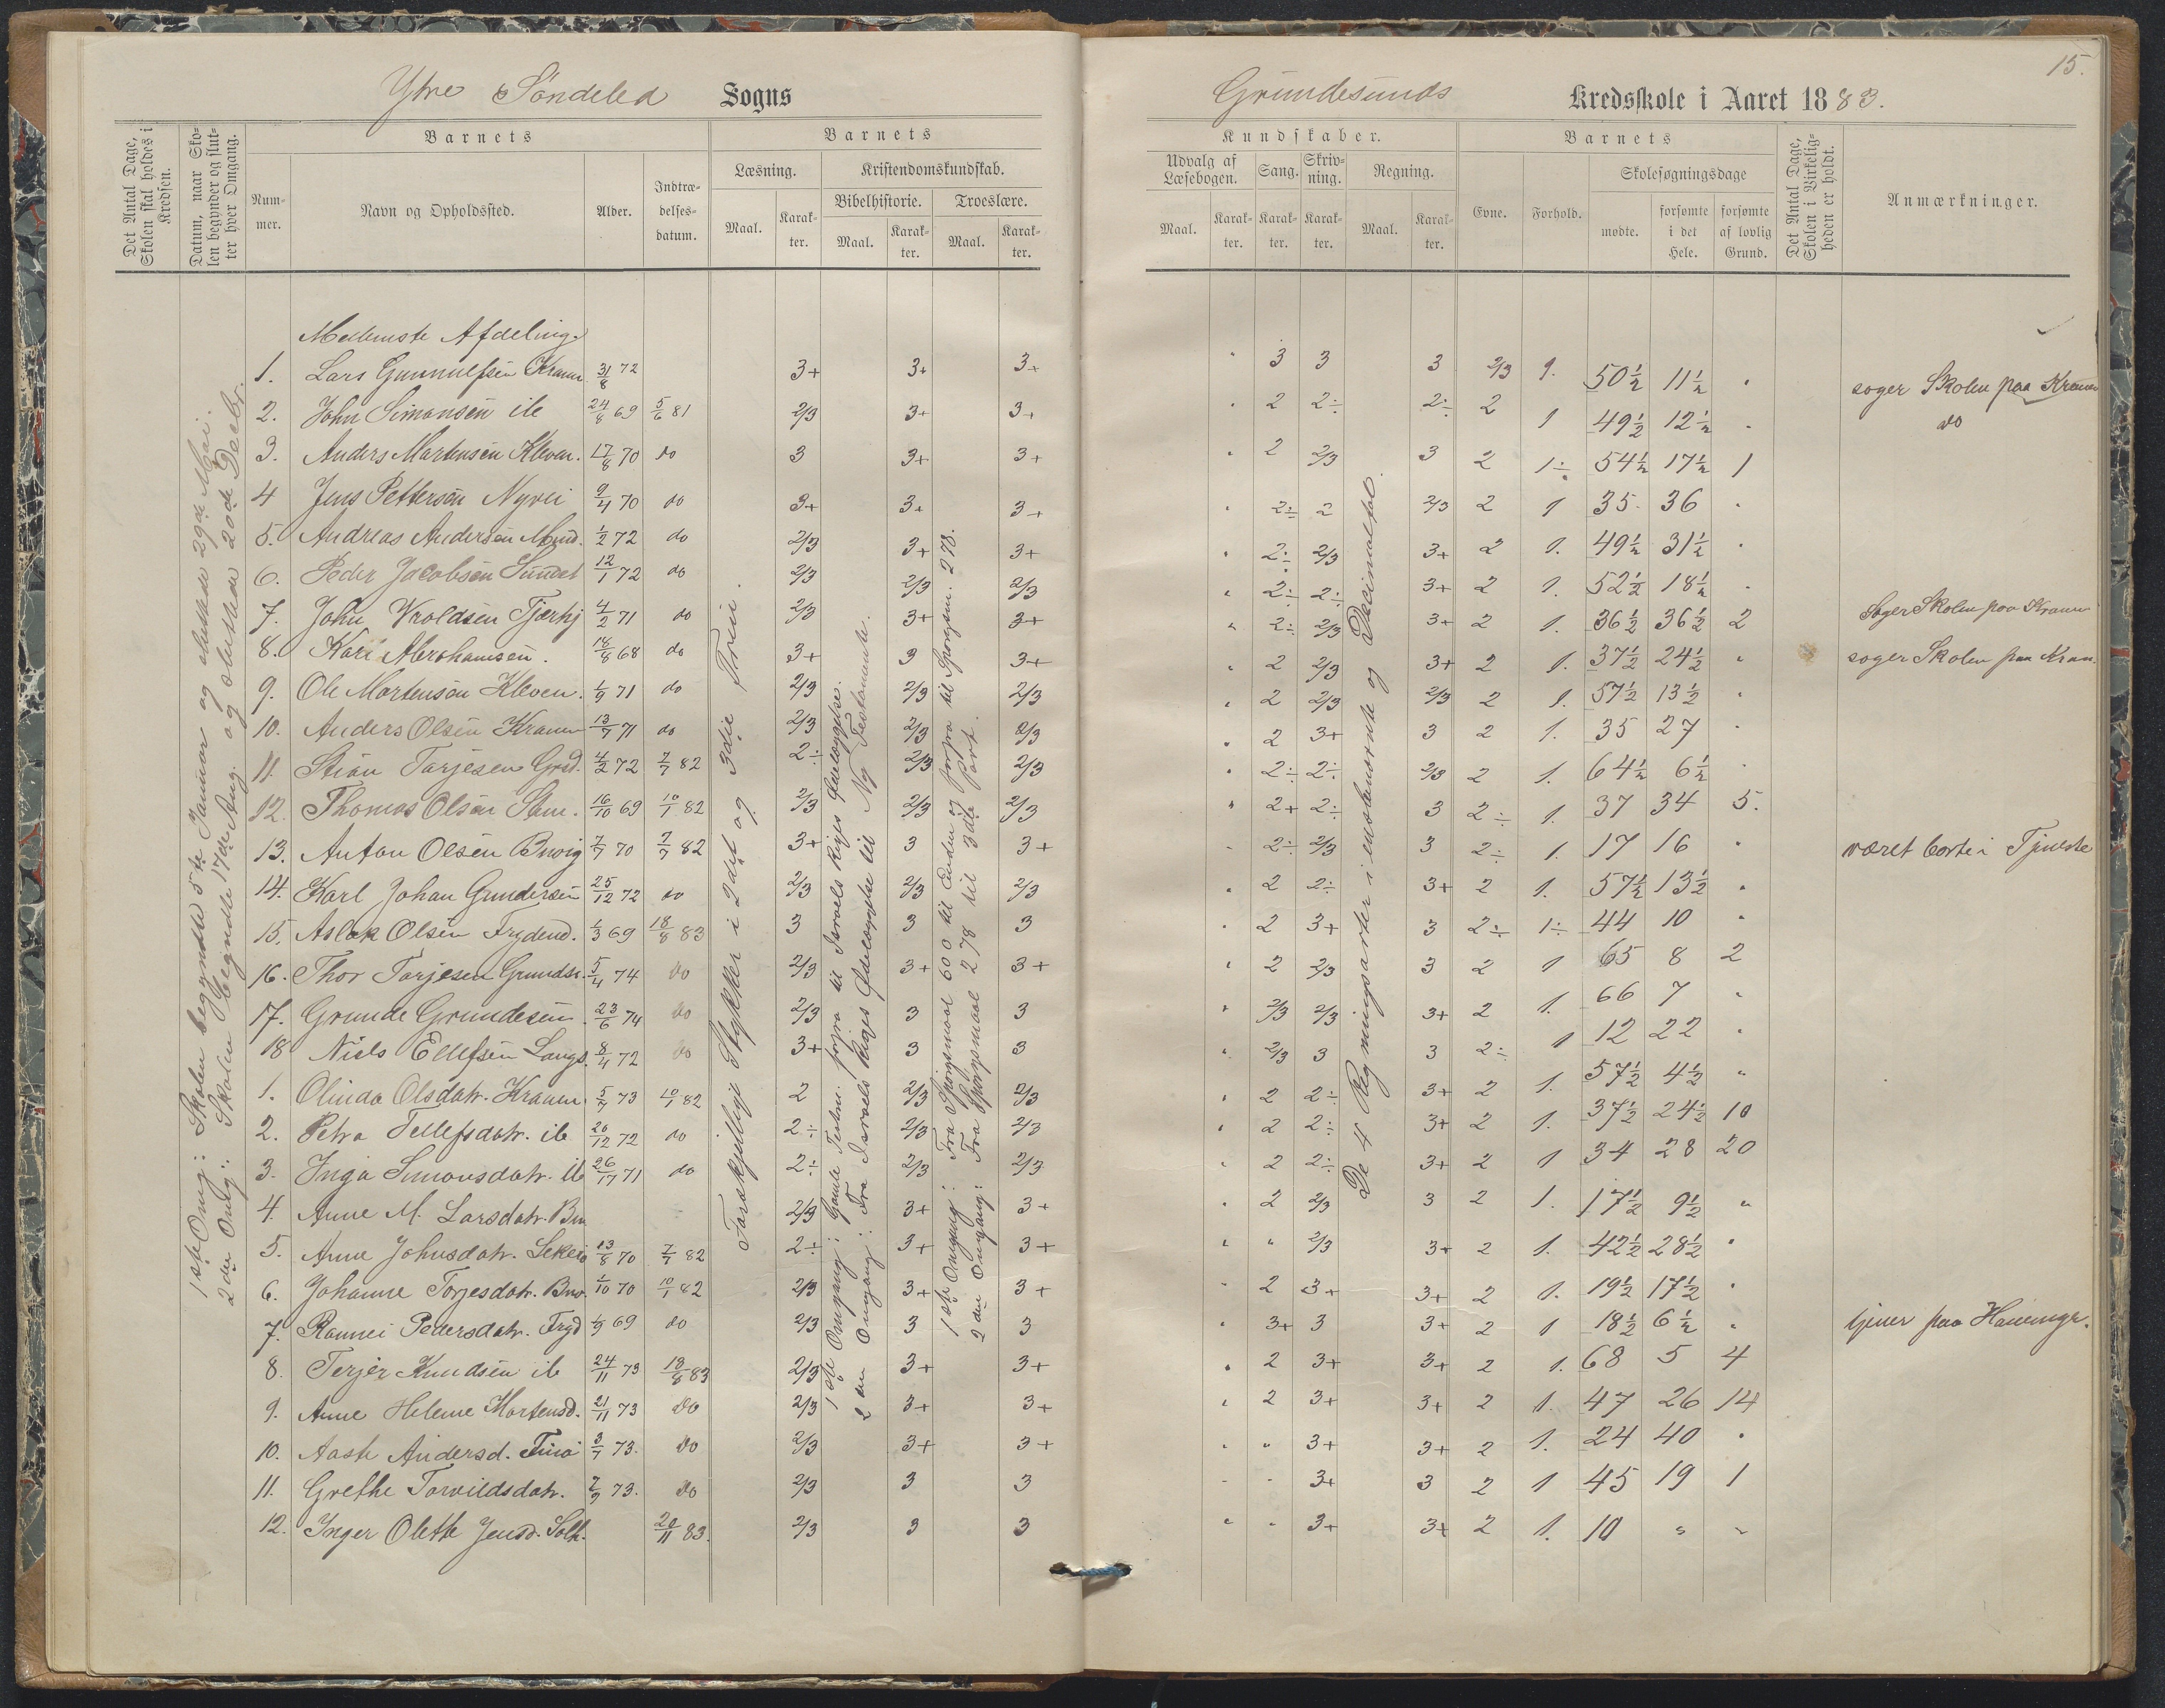 15.
Ytre Søndeled Sogns
Grundesunds Kredsskole i Aaret 1883.
Det Antal Dage, Skolen skal holdes i Kredsen.
Datum, naar Skolen begynder og slutter hver Omgang.
Barnets
Nummer.
Navn og Opholdssted.
Alder.
Indtrædelsesdatum.
Barnets
Læsning.
Kristendomskundskab.
Bibelhistorie.
Troeslære.
Maal.
Karakter.
Maal.
Karakter.
Maal.
Karakter.
Kundskaber.
Udvalg af Læsebogen.
Sang.
Skrivning.
Regning.
Maal.
Karakter.
Karakter.
Karakter.
Maal.
Karakter.
Barnets
Evne.
Forhold.
Skolesøgningsdage
mødte.
forsømte i det Hele.
forsømte af lovlig Grund.
Det Antal Dage, Skolen i Virkeligheden er holdt.
Anmærkninger.
1ste Omg: Skolen begyndte 5te Januar og sluttede 29de Mai.
2den Omg: Skolen begyndte 17de Aug. og sluttede 20de Decbr.
Forskjellige Stykker i 2det og 3die Trin.
1ste Omgang: Gamle Testm. forfra til Israels Riges Ødelæggelse.
2den Omgang: Fra Israels Riges Ødelæggelse til Ny Testamente.
1ste Omgang: Fra Spørgsmaal 600 til Enden og forfra til Spørgsm. 278.
2den Omgang: Fra Spørgsmaal 278 til 3die Part.
De 4 Regningsarter i ensbenævnte og Decimaltal.
Mellemste Afdeling.
1. Lars Gunnulfsen Kranen 31/8 72 3+ 3+ 3+ " 3 3 3 2/3 1. 50½ 11½ " søger Skolen paa Kranen
2. John Simonsen ib 24/8 69 5/6 81 2/3 3+ 3+ " 2 2÷ 2÷ 2 1 49½ 12½ " do
3. Anders Martensen Kleven. 17/8 70 do 3 3+ 3+ " 2 2/3 3 2 1÷ 54½ 17½ 1
4 Jens Pettersen Nyvei 9/4 70 do 3+ 3+ 3+ " 2÷ 2 2/3 2 1 35 36 "
5. Andreas Andersen 1/2 72 do 2/3 3+ 3+ " 2÷ 2/3 3+ 2 1. 49½ 31½ "
6. Peder Jacobsen Sundet 12/1 72 do 2/3 2/3 2/3 " 2÷ 2÷ 3+ 2 1. 52½ 18½ "
7. John Vroldsen 4/2 71 do 2/3 3+ 3+ " 2÷ 2/3 3+ 2 1. 36½ 36½ 2 Søger Skolen paa Kranen
8. Kari Abrahamsen. 18/8 68 do 3+ 3 3+ " 2 2/3 3+ 2 1. 37½ 24½ " søger Skolen paa Kran.
9. Ole Martensen Kleven. 1/9 71 do 2/3 2/3 2/3 " 2 2/3 2/3 2 1. 57½ 13½ "
10. Anders Olsen Kranen 13/7 71 do 2/3 2/3 2/3 " 2 3+ 3 2 1. 35 27 "
11. Stian Tarjesen Grd. 4/2 72 7/7 82 2÷ 2/3 2/3 " 2÷ 2÷ 2/3 2 1. 64½ 6½ "
12. Thomas Olsen 16/10 69 10/1 82 2/3 2/3 2/3 " 2+ 2÷ 3 2÷ 1. 37 34 5.
13. Anton Olsen 7/7 70 7/7 82 3+ 3 3+ " 2÷ 2/3 3 2÷ 1. 17 16 " været borte i Tjeneste
14. Karl Johan Gundersen 25/12 72 do 2/3 2/3 2/3 " 2 2÷ 3+ 2 1. 57½ 13½ "
15. Aslak Olsen Frydend. 1/3 69 18/8 83 3 3 3 " 2 3+ 3 2÷ 1÷ 44 10 "
16. Thor Tarjesen Grundes. 5/4 74 do 2/3 3+ 3+ " 2 2/3 3 2 1 65 8 2
17. Grunde Grundesen 23/6 74 do 2/3 3 3 " 2/3 2/3 3+ 2 1. 66 7 "
18 Niels Ellefsen Langs. 8/4 72 do 3+ 3 3 " 2/3 3 3 2÷ 1 12 22 "
1. Olinda Olsdatr. Kranen. 5/7 73 10/1 82 2 2/3 2/3 " 2 2÷ 3+ 2 1. 57½ 4½ "
2. Petra Tellefsdatr. ib 20/12 72 do 2÷ 2/3 2/3 " 2 2÷ 3+ 2 1. 37½ 24½ 10
3. Inga Simonsdatr. ib 71 do 2÷ 2/3 2/3 " 2 2÷ 3+ 2 1 34 28 20
4. Anne M. Larsdatr. 2/3 3+ 3+ " 2 2/3 3 2 1. 17½ 9½ "
5. Anne Johnsdatr. 13/8 70 7/7 82 2÷ 3+ 3+ " " 2/3 3+ 2 1. 42½ 28½ "
6. Johanne Torjesdatr. 1/10 70 10/1 82 2/3 3+ 3+ " 2 3+ 3+ 2 1. 19½ 17½ "
7. Rannei Pedersdatr. Fryd 1/9 69 do 2/3 3 3 " 3+ 3 3+ 2 1 18½ 6½ " tjener paa
8. Terjer Knudsen ib 24/11 73 18/8 83 2/3 3+ 3+ " 2 3+ 3+ 2 1. 68 5 4
9. Anne Helene Martensd. 21/11 73 do 2/3 3+ 3+ " 2 3+ 3+ 2 1. 47 26 14
10. Aaste Andersd. 3/7 73. do 2/3 3+ 3+ " " 3+ 3+ 2 1. 24 40 "
11. Grethe Torvildsdatr. 2/9 73. do 2/3 3 3 " " 3+ 3 2 1 45 19 1
12. Inger Olette Jensd. Solh. 20/11 83. 2/3 3 3 " " 3+ 3+ 2 1. 10 " "